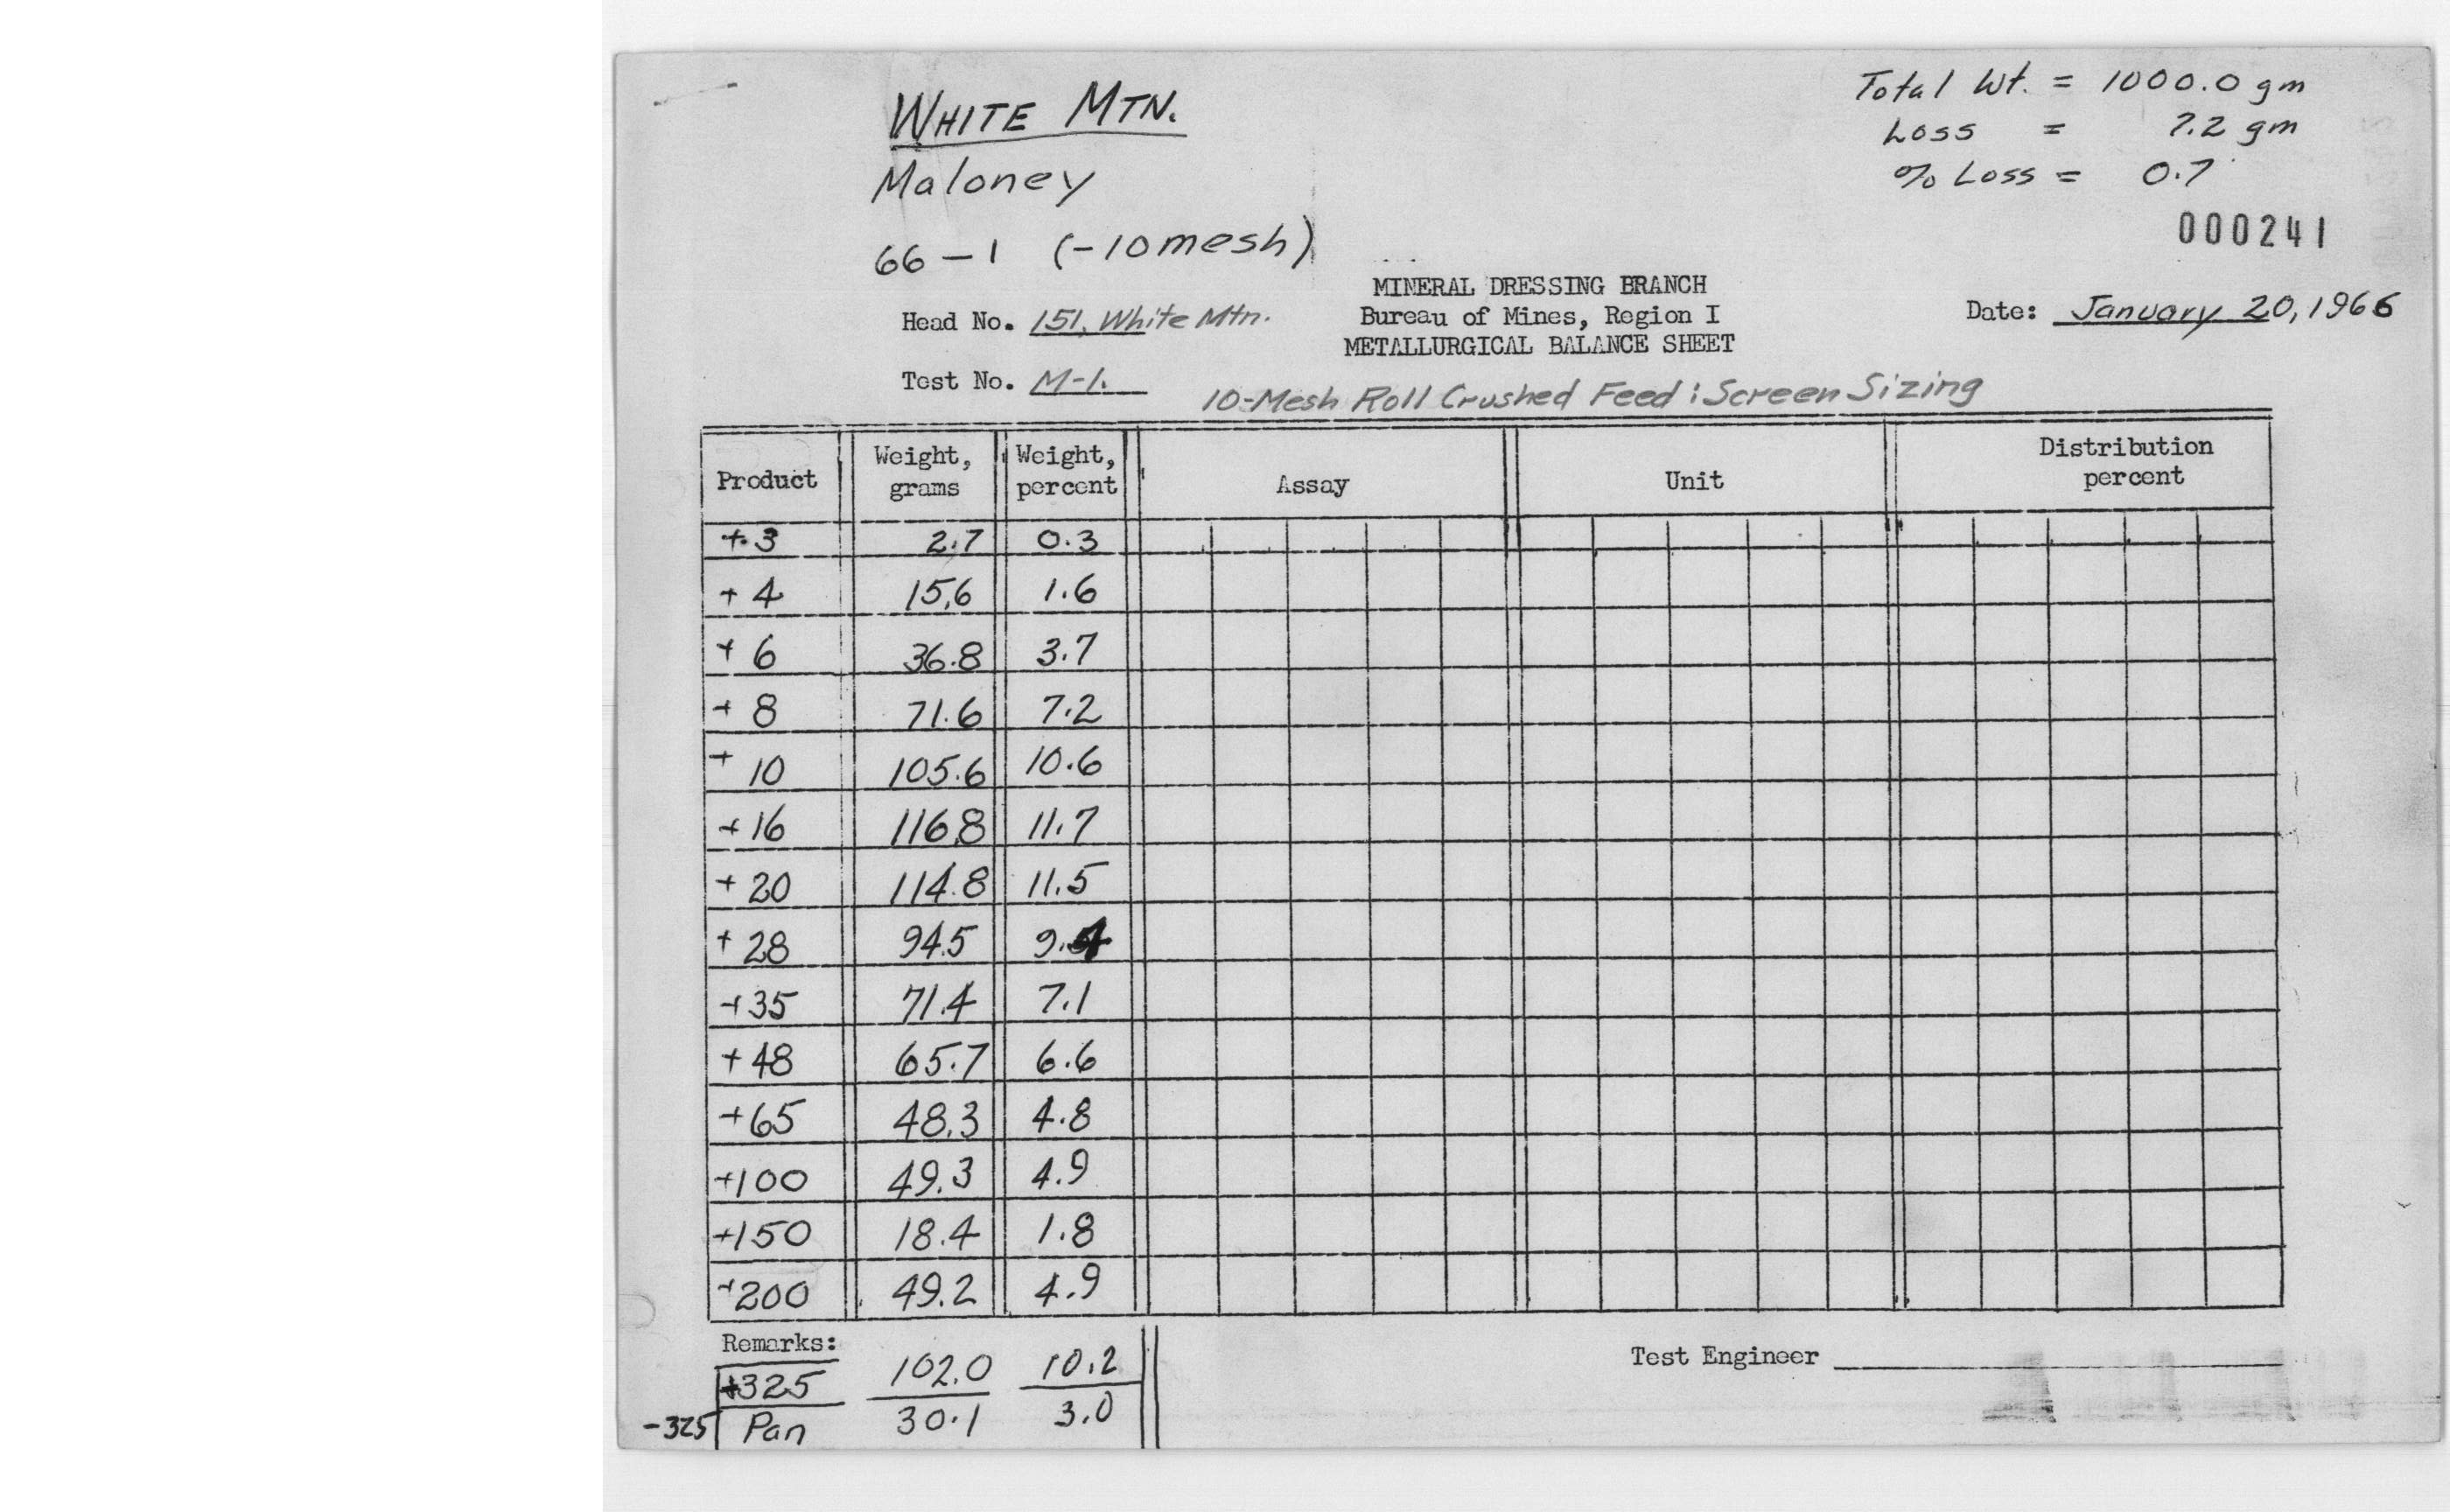 WHITE MTN.
Maloney
66-1 (-10 mesh)
Total Wt. = 1000.0 gm
Loss = 7.2 gm
% Loss = 0.7
000241
MINERAL DRESSING BRANCH
Bureau of Mines, Region I
METALLURGICAL BALANCE SHEET
Head No. 151, White Mtn.
Date: January 20, 1966
Test No. M-1.
10-Mesh Roll Crushed Feed: Screen Sizing
Product Weight, grams Weight, percent Assay Unit Distribution percent
+3 2.7 0.3
+4 15.6 1.6
+6 36.8 3.7
+8 71.6 7.2
+10 105.6 10.6
+16 116.8 11.7
+20 114.8 11.5
+28 94.5 9.4
+35 71.4 7.1
+48 65.7 6.6
+65 48.3 4.8
+100 49.3 4.9
+150 18.4 1.8
+200 49.2 4.9
Remarks:
+325 102.0 10.2
-325 Pan 30.1 3.0
Test Engineer